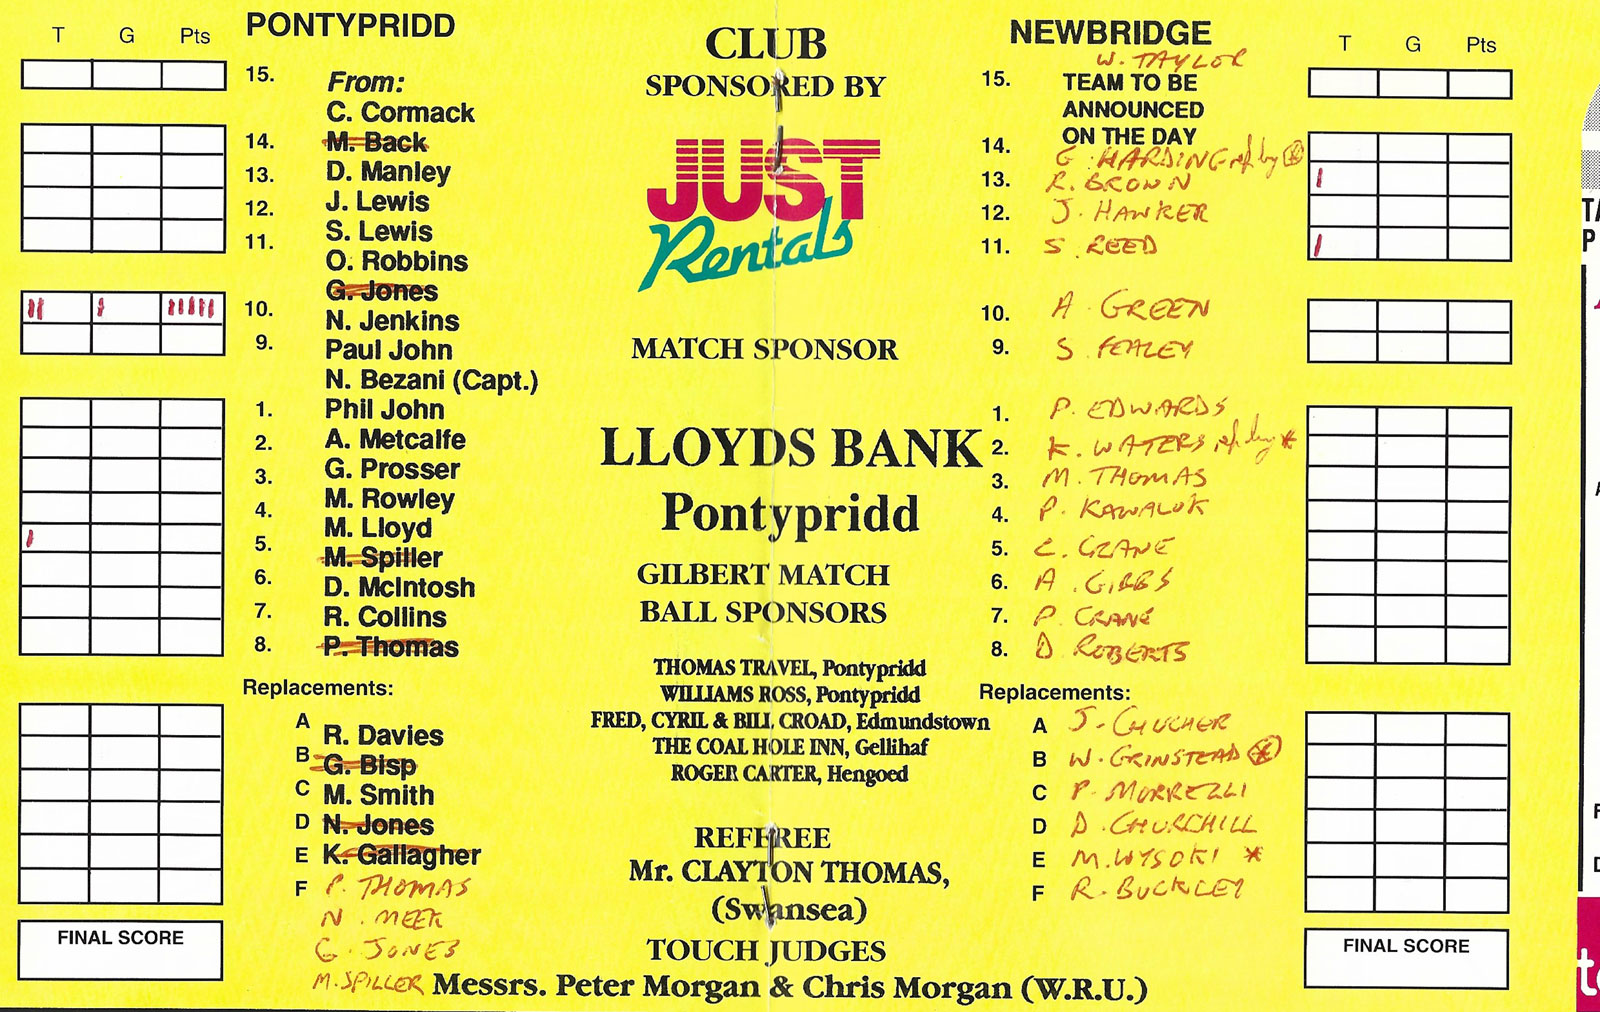 T G Pts
PONTYPRIDD
15.
From:
C. Cormack
14. M. Back
13. D. Manley
12. J. Lewis
11. S. Lewis
O. Robbins
G. Jones
10. N. Jenkins
9. Paul John
N. Bezani (Capt.)
1. Phil John
2. A. Metcalfe
3. G. Prosser
4. M. Rowley
5. M. Lloyd
M. Spiller
6. D. McIntosh
7. R. Collins
8. P. Thomas
Replacements:
A R. Davies
B G. Bisp
C M. Smith
D N. Jones
E K. Gallagher
F P. THOMAS
N. MEEK
G. JONES
M. SPILLER
FINAL SCORE
CLUB
SPONSORED BY
JUST
Rentals
MATCH SPONSOR
LLOYDS BANK
Pontypridd
GILBERT MATCH
BALL SPONSORS
THOMAS TRAVEL, Pontypridd
WILLIAMS ROSS, Pontypridd
FRED, CYRIL & BILL CROAD, Edmundstown
THE COAL HOLE INN, Gellihaf
ROGER CARTER, Hengoed
REFEREE
Mr. CLAYTON THOMAS,
(Swansea)
TOUCH JUDGES
Messrs. Peter Morgan & Chris Morgan (W.R.U.)
NEWBRIDGE
W. TAYLOR
15. TEAM TO BE
ANNOUNCED
ON THE DAY
14. G. HARDING rep by *
13. R. BROWN
12. J. HAWKER
11. S. REED
10. A. GREEN
9. S. FEALEY
1. P. EDWARDS
2. K. WATERS rep by *
3. M. THOMAS
4. P. KAWALUK
5. C. GRANE
6. A. GIBBS
7. P. CRANE
8. D ROBERTS
Replacements:
A J. CHUCHER
B W. GRINSTEAD *
C P. MORRELLI
D D. CHURCHILL
E M. WYSOKI *
F R. BUCKLEY
T G Pts
FINAL SCORE